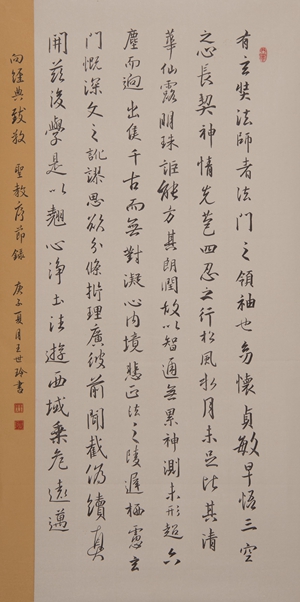 有玄奘法師者法門之領袖也幼懷貞敏早悟三空
之心長契神情先苞四忍之行松風水月未足比其清
華仙露明珠詎能方其朗潤故以智通無累神測未形超六
塵而迥出隻千古而無對凝心內境悲正法之陵遲栖慮玄
門慨深文之訛謬思欲分條析理廣彼前聞截偽續真
開茲後學是以翹心淨土法遊西域乘危遠邁
向經典致敬 聖教序節錄 庚子夏月王世玲書